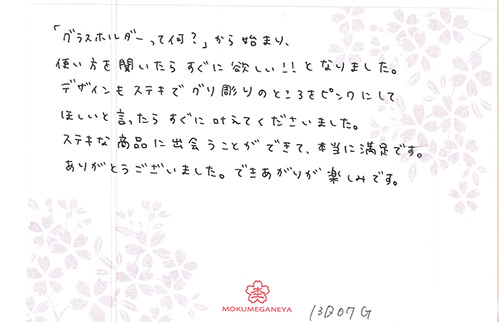 「グラスホルダーって何？」から始まり、
使い方を聞いたらすぐに欲しい!!となりました。
デザインもステキでグリ彫りのところをピンクにして
ほしいと言ったらすぐに叶えてくださいました。
ステキな商品に出会うことができて、本当に満足です。
ありがとうございました。できあがりが楽しみです。
MOKUMEGANEYA
13B07G